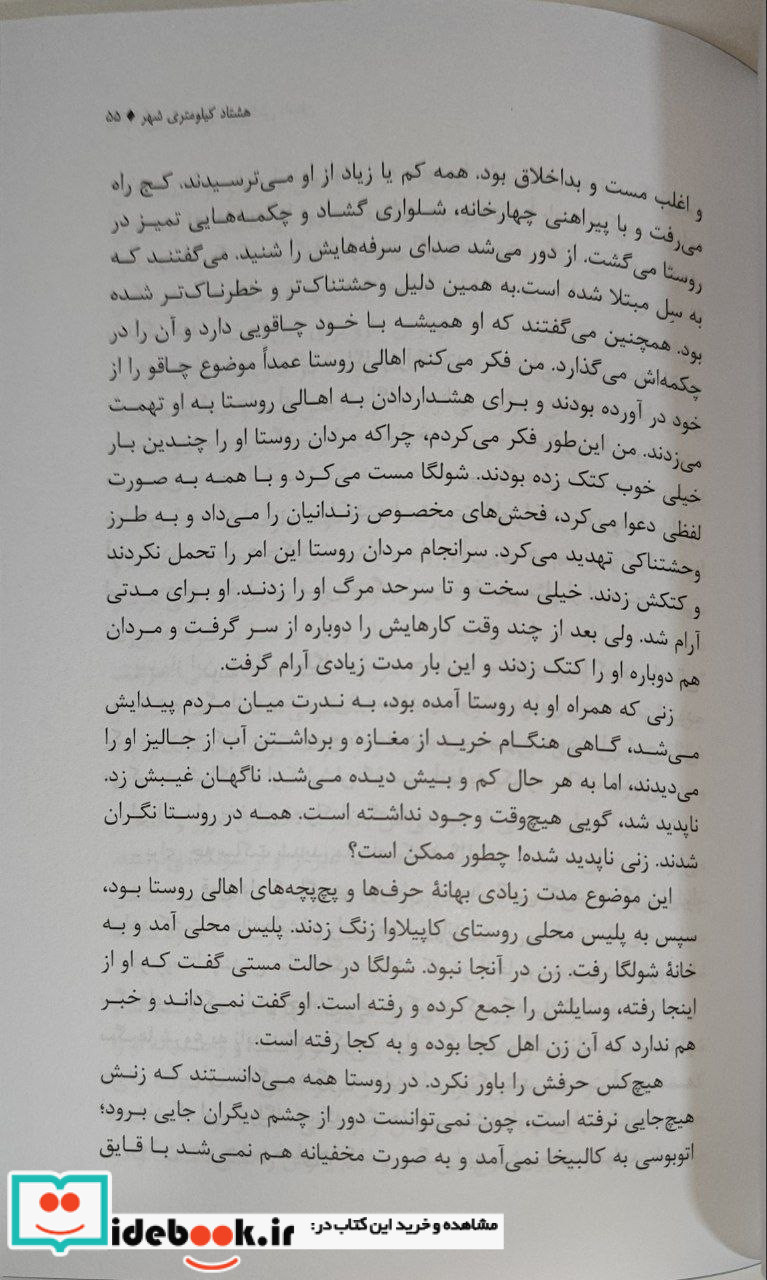 هشتاد کیلومتری شهر ♦ ۵۵
و اغلب مست و بداخلاق بود. همه کم یا زیاد از او می‌ترسیدند. کج راه
می‌رفت و با پیراهنی چهارخانه، شلواری گشاد و چکمه‌هایی تمیز در
روستا می‌گشت. از دور می‌شد صدای سرفه‌هایش را شنید. می‌گفتند که
به سِل مبتلا شده است.به همین دلیل وحشتناک‌تر و خطرناک‌تر شده
بود. همچنین می‌گفتند که او همیشه با خود چاقویی دارد و آن را در
چکمه‌اش می‌گذارد. من فکر می‌کنم اهالی روستا عمداً موضوع چاقو را از
خود در آورده بودند و برای هشداردادن به اهالی روستا به او تهمت
می‌زدند. من این‌طور فکر می‌کردم، چراکه مردان روستا او را چندین بار
خیلی خوب کتک زده بودند. شولگا مست می‌کرد و با همه به صورت
لفظی دعوا می‌کرد، فحش‌های مخصوص زندانیان را می‌داد و به طرز
وحشتناکی تهدید می‌کرد. سرانجام مردان روستا این امر را تحمل نکردند
و کتکش زدند. خیلی سخت و تا سرحد مرگ او را زدند. او برای مدتی
آرام شد. ولی بعد از چند وقت کارهایش را دوباره از سر گرفت و مردان
هم دوباره او را کتک زدند و این بار مدت زیادی آرام گرفت.
زنی که همراه او به روستا آمده بود، به ندرت میان مردم پیدایش
می‌شد، گاهی هنگام خرید از مغازه و برداشتن آب از جالیز او را
می‌دیدند، اما به هر حال کم و بیش دیده می‌شد. ناگهان غیبش زد.
ناپدید شد، گویی هیچ‌وقت وجود نداشته است. همه در روستا نگران
شدند. زنی ناپدید شده! چطور ممکن است؟
این موضوع مدت زیادی بهانهٔ حرف‌ها و پچ‌پچه‌های اهالی روستا بود،
سپس به پلیس محلی روستای کاپیلاوا زنگ زدند. پلیس محلی آمد و به
خانهٔ شولگا رفت. زن در آنجا نبود. شولگا در حالت مستی گفت که او از
اینجا رفته، وسایلش را جمع کرده و رفته است. او گفت نمی‌داند و خبر
هم ندارد که آن زن اهل کجا بوده و به کجا رفته است.
هیچ‌کس حرفش را باور نکرد. در روستا همه می‌دانستند که زنش
هیچ‌جایی نرفته است، چون نمی‌توانست دور از چشم دیگران جایی برود؛
اتوبوسی به کالبیخا نمی‌آمد و به صورت مخفیانه هم نمی‌شد با قایق
مشاهده و خرید این کتاب در:
idebook.ir